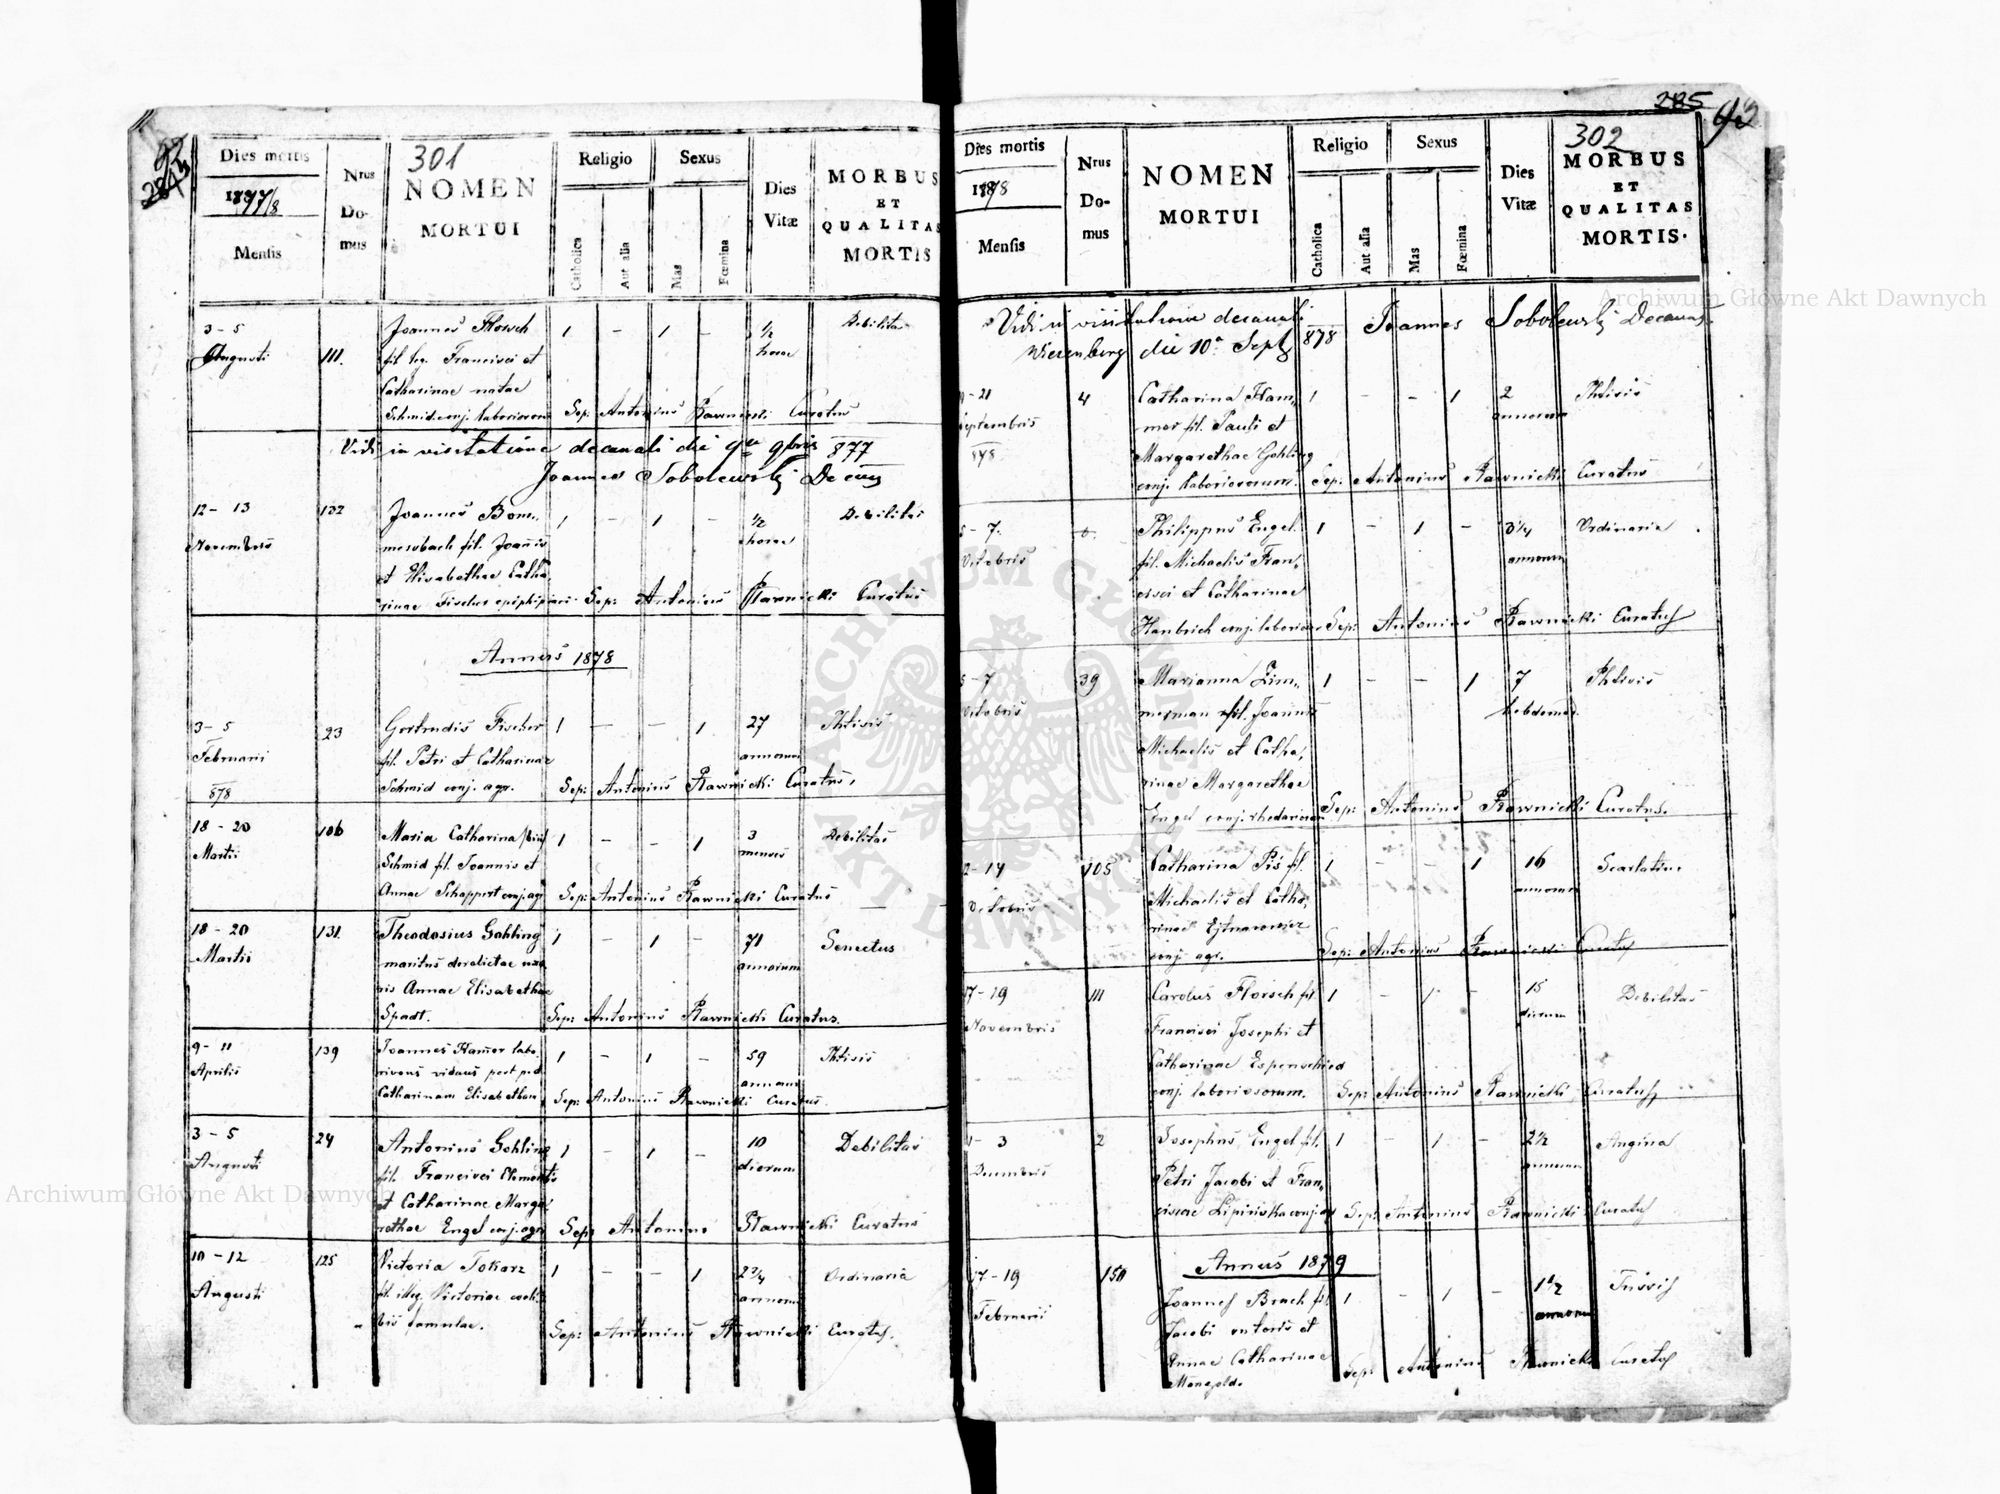 92
301
Dies mortis
1877/8
Mensis
Nrus
Do-
mus
NOMEN
MORTUI
Religio
Catholica
Aut alia
Sexus
Mas
Fœmina
Dies
Vitæ
MORBUS
ET
QUALITAS
MORTIS
3-5
Augusti
111.
Joannes Florsch
fil. leg. Francisci et
Catharinae natae
Schmid conj. laboriosorum
1 - 1 -
1/2
horae
Debilitas
Sep: Antonius Rawnicki Curatus
Vidi in visitatione decanali die 9bris 877
Joannes Sobolewski Decanus
12-13
Novembris
132
Joannes Bom-
mersbach fil. Joannis
et Elisabethae Catha-
rinae Fischer
1 - 1 -
1/2
horae
Debilitas
Sep: Antonius Rawnicki Curatus
Annus 1878
3-5
Februarii
878
23
Gertrudis Fischer
fil. Petri et Catharinae
Schmid conj. agr.
1 - - 1
27
annorum
Phtisis
Sep: Antonius Rawnicki Curatus.
18-20
Martii
106
Maria Catharina
Schmid fil. Joannis et
Annae Schappert conj. agr
1 - - 1
3
menses
Debilitas
Sep: Antonius Rawnicki Curatus
18-20
Martii
131.
Theodosius Gohling
maritus derelictae uxo
ris Annae Elisabethae
Spadt.
1 - 1 -
71
annorum
Senectus
Sep: Antonius Rawnicki Curatus.
9-11
Aprilis
139
Joannes Hamer labo-
riosus viduus post
Catharinam Elisabetham
1 - 1 -
59
annorum
Phtisis
Sep: Antonius Rawnicki Curatus.
3-5
Augusti
24
Antonius Gohling
fil. Francisci Clementis
et Catharinae Marga
rethae Engel conj. agr
1 - 1 -
10
dierum
Debilitas
Sep: Antonius Rawnicki Curatus
10-12
Augusti
125
Victoria Tokarz
fil. illeg. Victoriae coeli-
bis famulae.
1 - - 1
2 3/4
annorum
Ordinaria
Sep: Antonius Rawnicki Curatus.
285
302
Dies mortis
1878
Mensis
Nrus
Do-
mus
NOMEN
MORTUI
Religio
Catholica
Aut alia
Sexus
Mas
Fœmina
Dies
Vitæ
MORBUS
ET
QUALITAS
MORTIS.
Vidi in visitatione decanali 878 Joannes Sobolewski Decanus.
Wiesenberg die 10a Sept
-21
Septembris
878
4
Catharina Ham-
mer fil. Pauli et
Margarethae Gohling
conj. laboriosorum.
1 - - 1
2
annorum
Phtisis
Sep: Antonius Rawnicki Curatus
5-7.
Octobris
Philippus Engel
fil. Michaelis Fran-
cisci et Catharinae
conj. laborios
1 - 1 -
3 1/4
annorum
Ordinaria
Sep: Antonius Rawnicki Curatus
5-7
Octobris
39
Marianna Zim-
merman fil. Joannis
Michaelis et Catha-
rinae Margarethae
Engel conj.
1 - - 1
7
hebdomad.
Phtisis
Sep: Antonius Rawnicki Curatus.
2-14
Octobris
105
Catharina Piś fil.
Michaelis et Catha-
rinae
conj. agr.
1 - - 1
16
annorum
Scarlatina
Sep: Antonius Rawnicki Curatus
17-19
Novembris
111
Carolus Florsch fil.
Francisci Josephi et
Catharinae Espenschied
conj. laboriosorum.
1 - 1 -
15
dierum
Debilitas
Sep: Antonius Rawnicki Curatus
1-3
Decembris
2
Josephus Engel fil.
Petri Jacobi et Fran-
ciscae Lipińska conj. agr
1 - 1 -
2 1/2
annorum
Angina
Sep: Antonius Rawnicki Curatus
Annus 1879
17-19
Februarii
150
Joannes Brach fil.
Jacobi et
Annae Catharinae
1 - 1 -
1 1/2
annorum
Tussis
Sep: Antonius Rawnicki Curatus
Archiwum Główne Akt Dawnych
Archiwum Główne Akt Dawnych
ARCHIWUM GŁÓWNE
AKT DAWNYCH